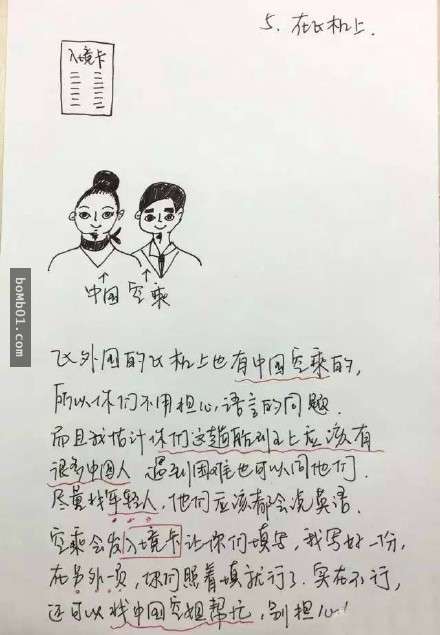 5、在飞机上.
入境卡
中国 空乘
飞外国的飞机上也有中国空乘的,
所以你们不用担心语言的问题.
而且我估计你们这趟航班上应该有
很多中国人 遇到困难也可以问他们.
尽量找年轻人,他们应该都会说英语.
空乘会发入境卡让你们填写,我写好一份,
在另外一页,你们照着填就行了.实在不行,
还可以找中国空姐帮忙,别担心.
boMb01.com